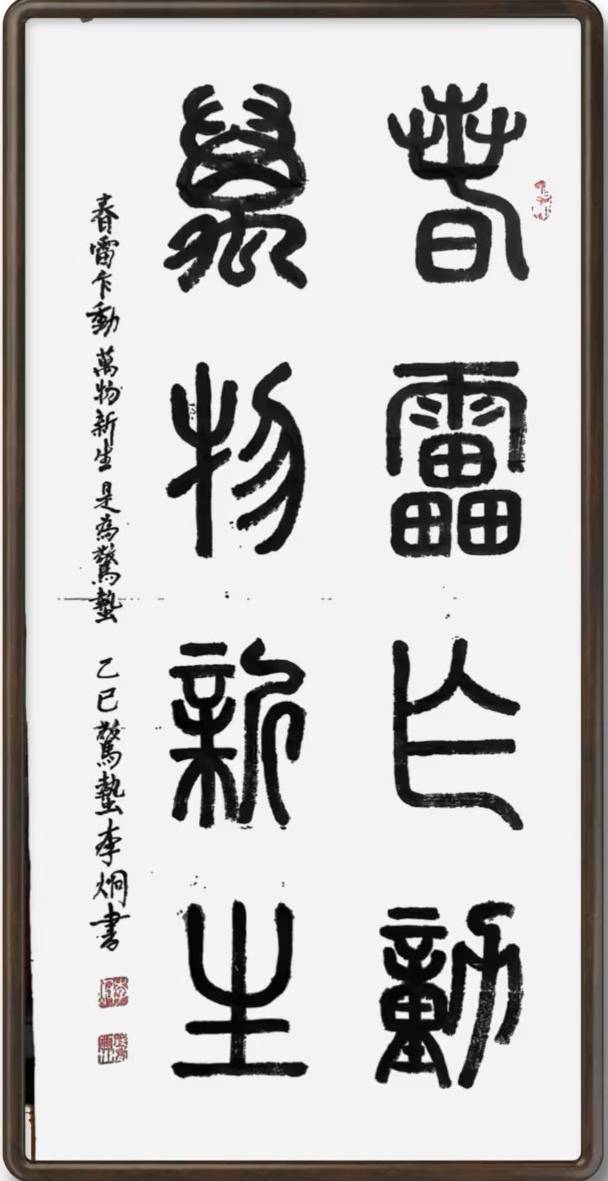 春雷乍動
萬物新生
春雷乍動萬物新生是為驚蟄 乙巳驚蟄李炯書